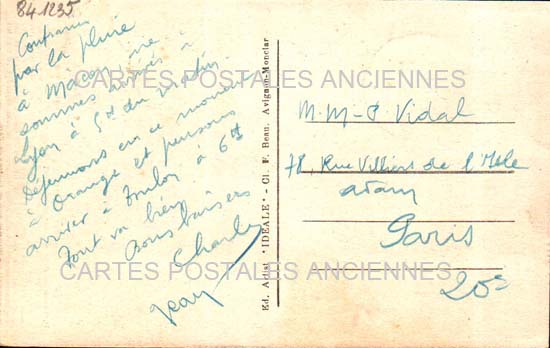 84.1235
Contrariés
par la pluie
à Macon, ne
sommes arrivés à
Lyon à 5h du matin.
Déjeunons en ce moment
à Orange et pensons
arriver à Toulon à 6h
Tout va bien
Bons baisers
Charles
Jean
Ed. Artist "IDEALE" - Cl. F. Bean, Avignon-Monclar
M.M-P Vidal
78, Rue Villiers de l'Isle
adam
Paris
20e
CARTES POSTALES ANCIENNES
CARTES POSTALES ANCIENNES